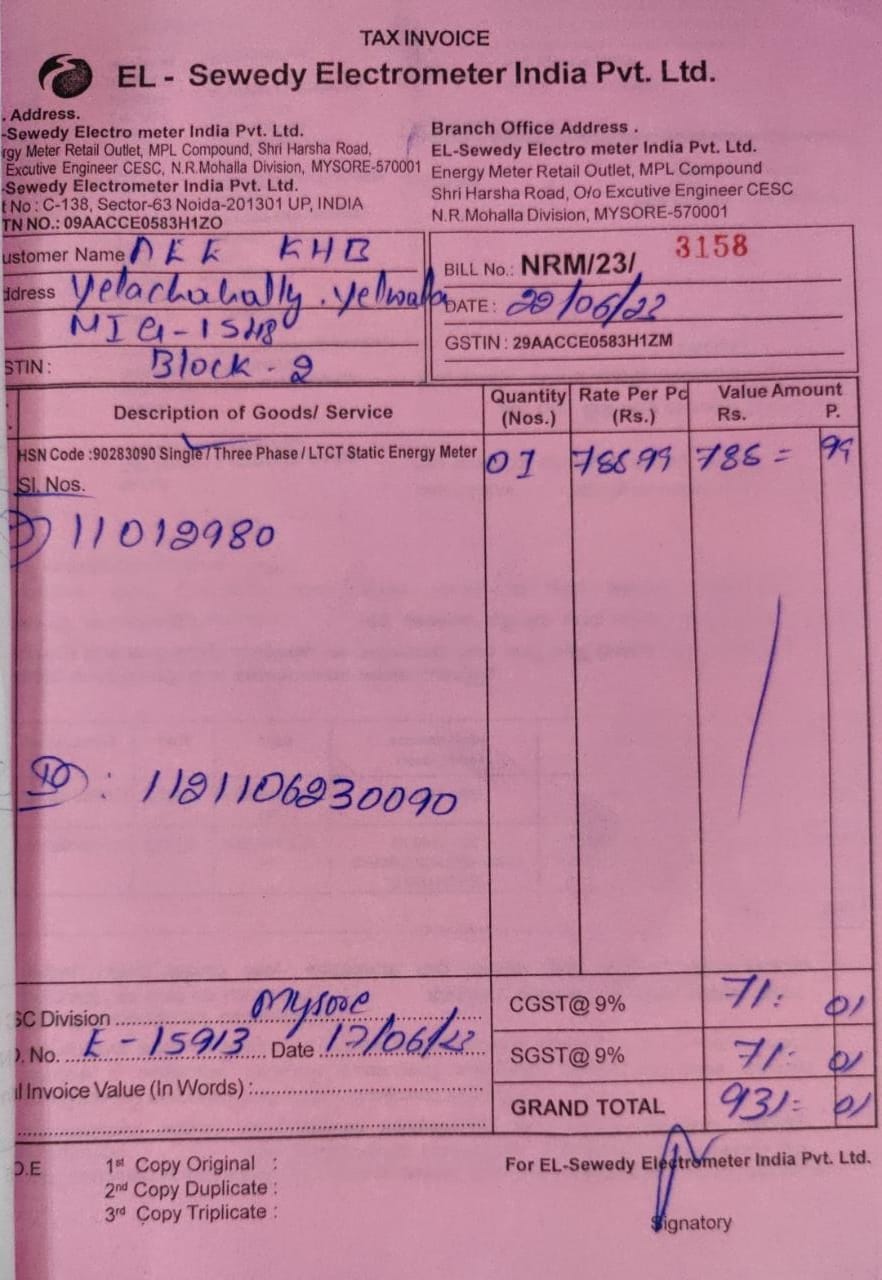 TAX INVOICE
EL - Sewedy Electrometer India Pvt. Ltd.
. Address.
-Sewedy Electro meter India Pvt. Ltd.
rgy Meter Retail Outlet, MPL Compound, Shri Harsha Road,
Excutive Engineer CESC, N.R.Mohalla Division, MYSORE-570001
-Sewedy Electrometer India Pvt. Ltd.
t No : C-138, Sector-63 Noida-201301 UP, INDIA
TN NO.: 09AACCE0583H1ZO
Branch Office Address .
EL-Sewedy Electro meter India Pvt. Ltd.
Energy Meter Retail Outlet, MPL Compound
Shri Harsha Road, O/o Excutive Engineer CESC
N.R.Mohalla Division, MYSORE-570001
ustomer Name AEE KHB
ddress Yelachahally . Yelwala
MIG-1548
STIN : Block - 2
BILL No.: NRM/23/ 3158
DATE : /06/
GSTIN : 29AACCE0583H1ZM
Description of Goods/ Service
Quantity (Nos.)
Rate Per Pc (Rs.)
Value Amount
Rs. P.
HSN Code :90283090 Single / Three Phase / LTCT Static Energy Meter 01 788 99 788 = 99
Sl. Nos.
1) 11012980
ID : 1121106230090
SC Division Mysore
). No. E - 15913 Date /06/
l Invoice Value (In Words) :
CGST@ 9% 71: 01
SGST@ 9% 71: 01
GRAND TOTAL 931= 01
O.E
1st Copy Original :
2nd Copy Duplicate :
3rd Copy Triplicate :
For EL-Sewedy Electrometer India Pvt. Ltd.
Signatory